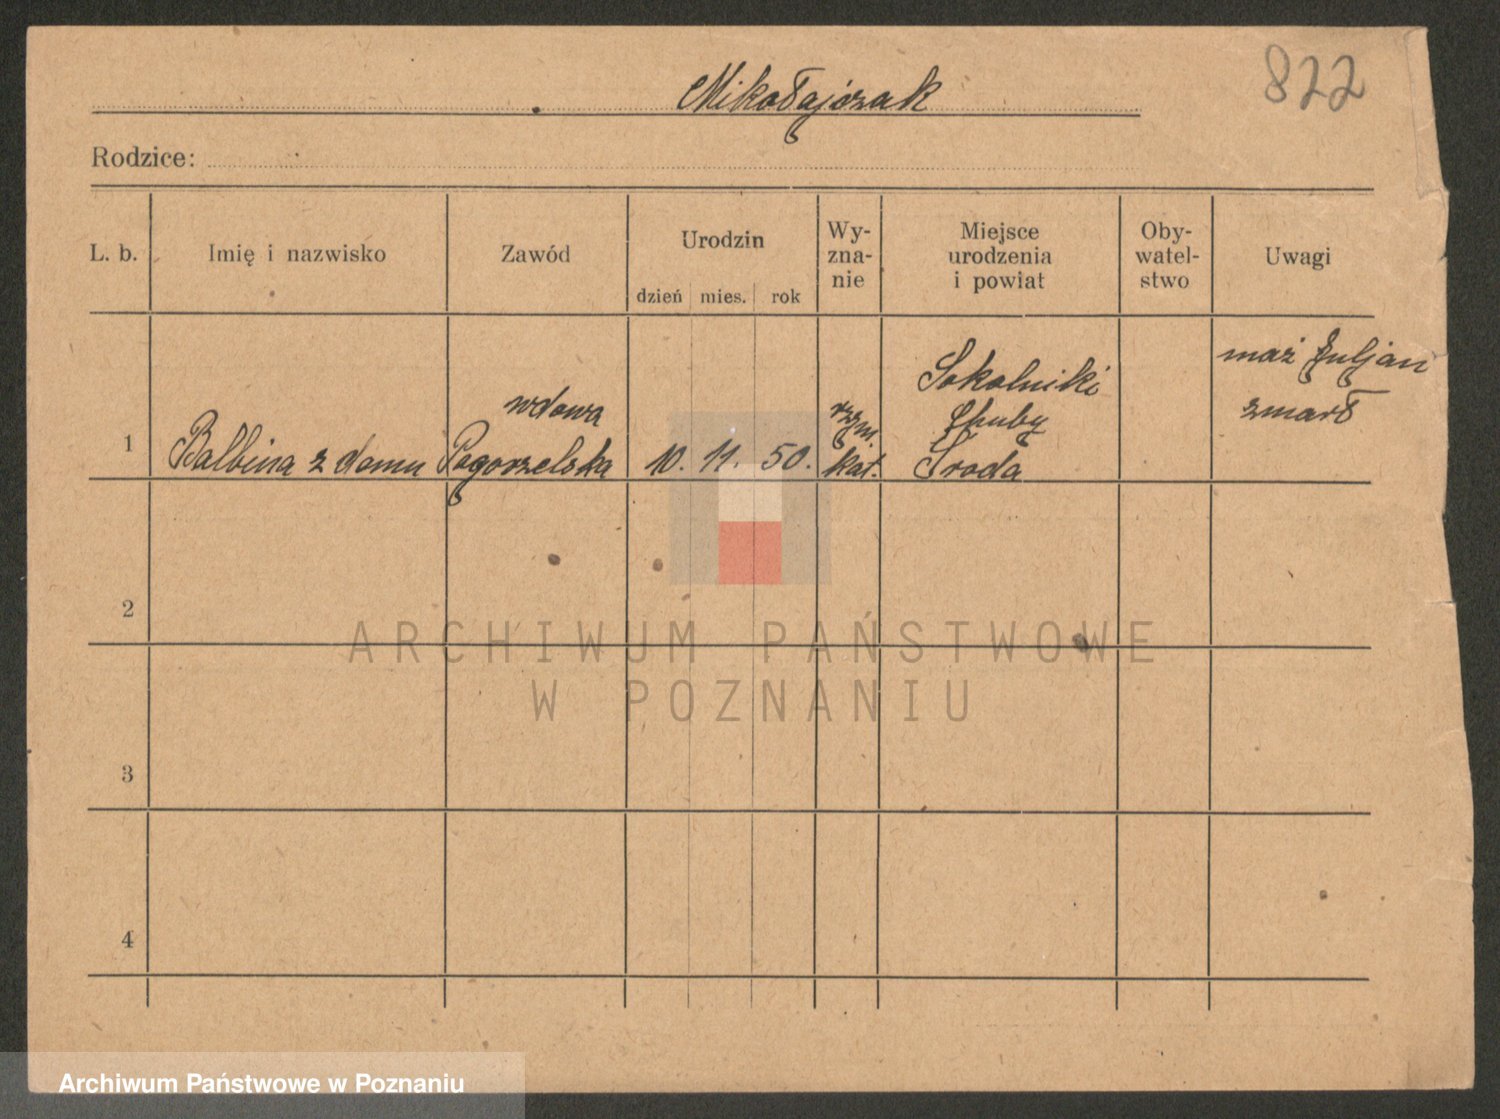 822
Mikołajczak
Rodzice:
L. b.
Imię i nazwisko
Zawód
Urodzin
dzień mies. rok
Wy-
zna-
nie
Miejsce
urodzenia
i powiat
Oby-
watel-
stwo
Uwagi
1
Balbina z domu Pogorzelska
wdowa
10. 11. 50.
rzym.
kat.
Sokolniki
Środa
mąż Juljan
zmarł
2
3
4
ARCHIWUM PAŃSTWOWE
W POZNANIU
Archiwum Państwowe w Poznaniu